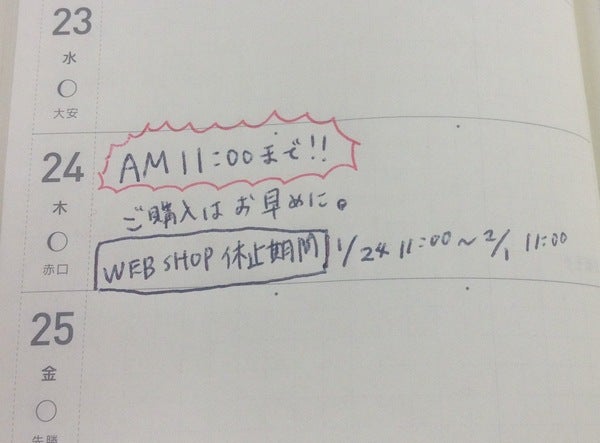 23
水
大安
24
木
赤口
AM11:00まで!!
ご購入はお早めに。
WEB SHOP 休止期間 1/24 11:00～2/1 11:00
25
金
先勝